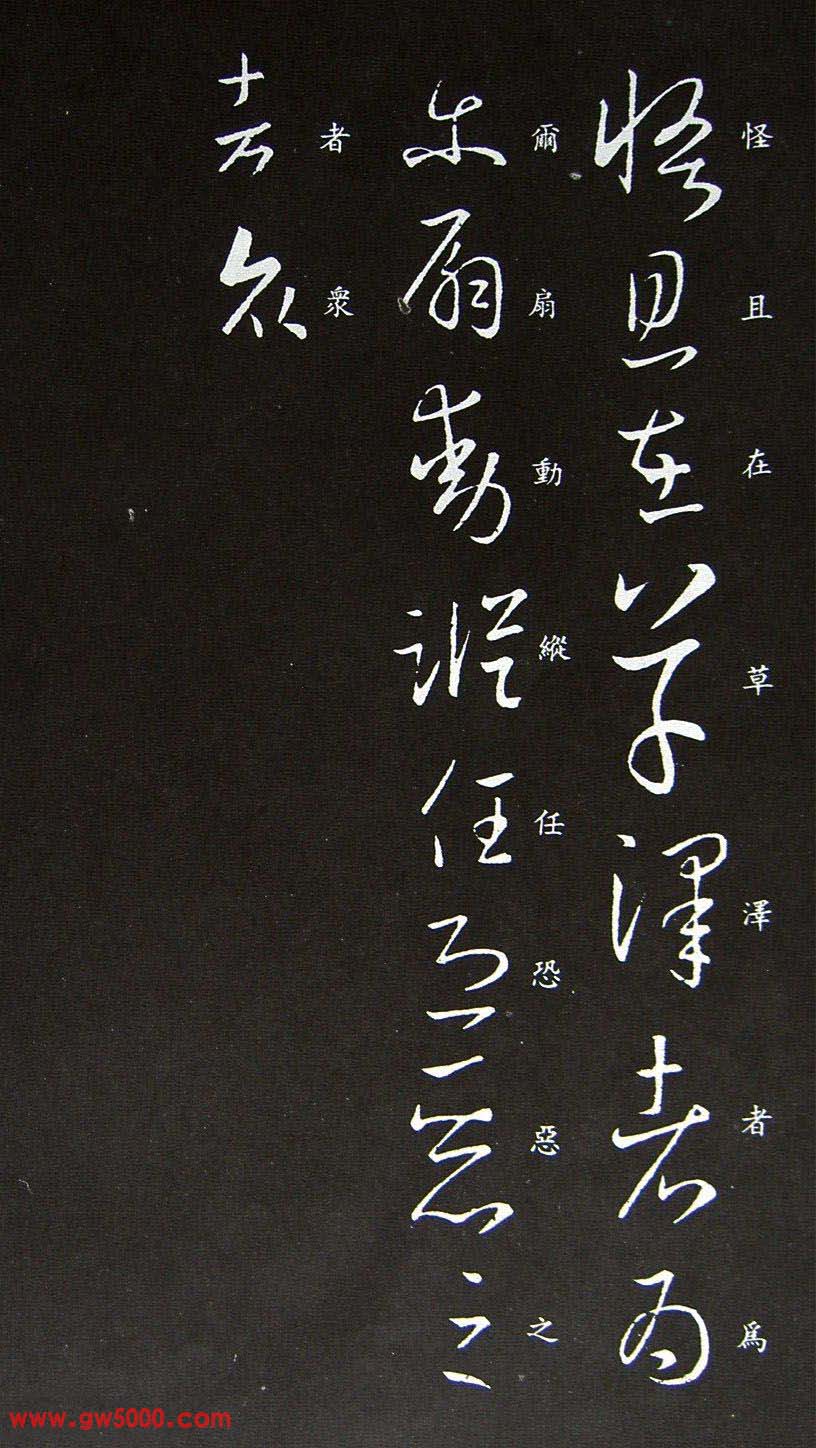 怪且在草澤者爲
爾扇動縱任恐惡之
者衆
www.gw5000.com